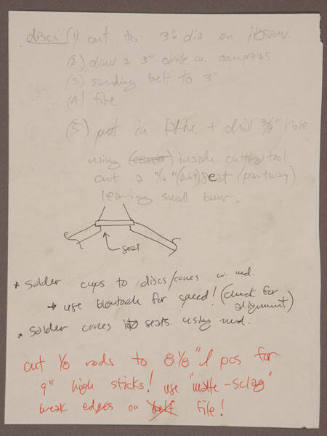 discs (1) cut to 3" dia on
(2) draw a 3" circle w. compass
(3) sanding belt to 3"
(4) file
(5) put in + drill 3/8" hole
using inside cutting tool
cut a seat (partway)
leaving small
seat
* solder cups to discs/cones w. med.
→ use blowtorch for speed! (check for alignment)
* solder cones to seats using med.
cut 1/8 rods to 8 1/8" l pcs for
9" high sticks! use
edges on file!